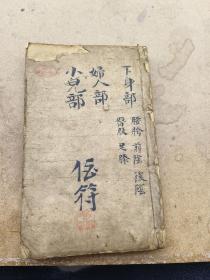 下身部
腰胯 前陰 後陰
臀股 足膝
婦人部
小兒部
符